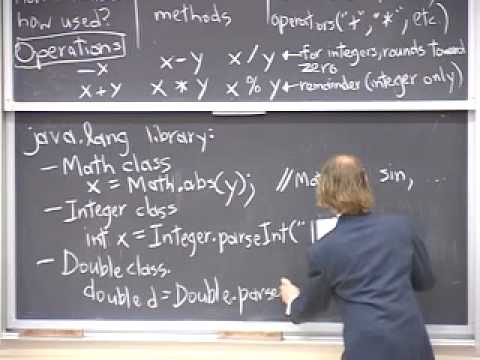 how used? methods operators("+","*", etc.)
Operations
-x x-y x/y ←for integers, rounds toward zero
x+y x*y x%y ←remainder (integer only)
java.lang library:
– Math class
x = Math.abs(y); // sin, ...
– Integer class
int x = Integer.parseInt("
– Double class.
double d = Double.parse